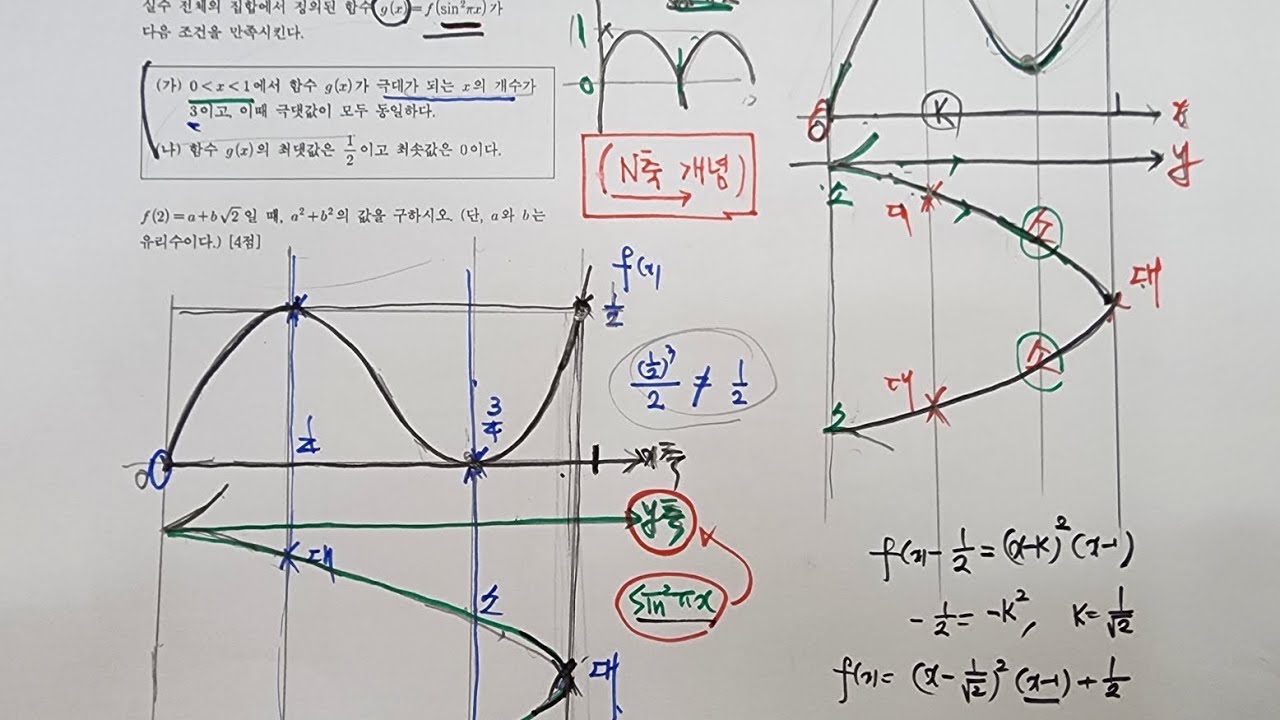 실수 전체의 집합에서 정의된 함수 g(x)=f(sin²πx)가
다음 조건을 만족시킨다.
(가) 0<x<1에서 함수 g(x)가 극대가 되는 x의 개수가
3이고, 이때 극댓값이 모두 동일하다.
(나) 함수 g(x)의 최댓값은 1/2이고 최솟값은 0이다.
f(2)=a+b√2일 때, a²+b²의 값을 구하시오. (단, a와 b는
유리수이다.) [4점]
1
0
(N축 개념)
0
K
1
x
y
소
대
소
대
소
대
소
f(x)
1/2
1/4
3/4
(1/2)³/2 ≠ 1/2
0
x축
y축
sin²πx
대
소
대
f(x)-1/2=(x-K)²(x-1)
-1/2=-K², K=1/√2
f(x)=(x-1/√2)²(x-1)+1/2